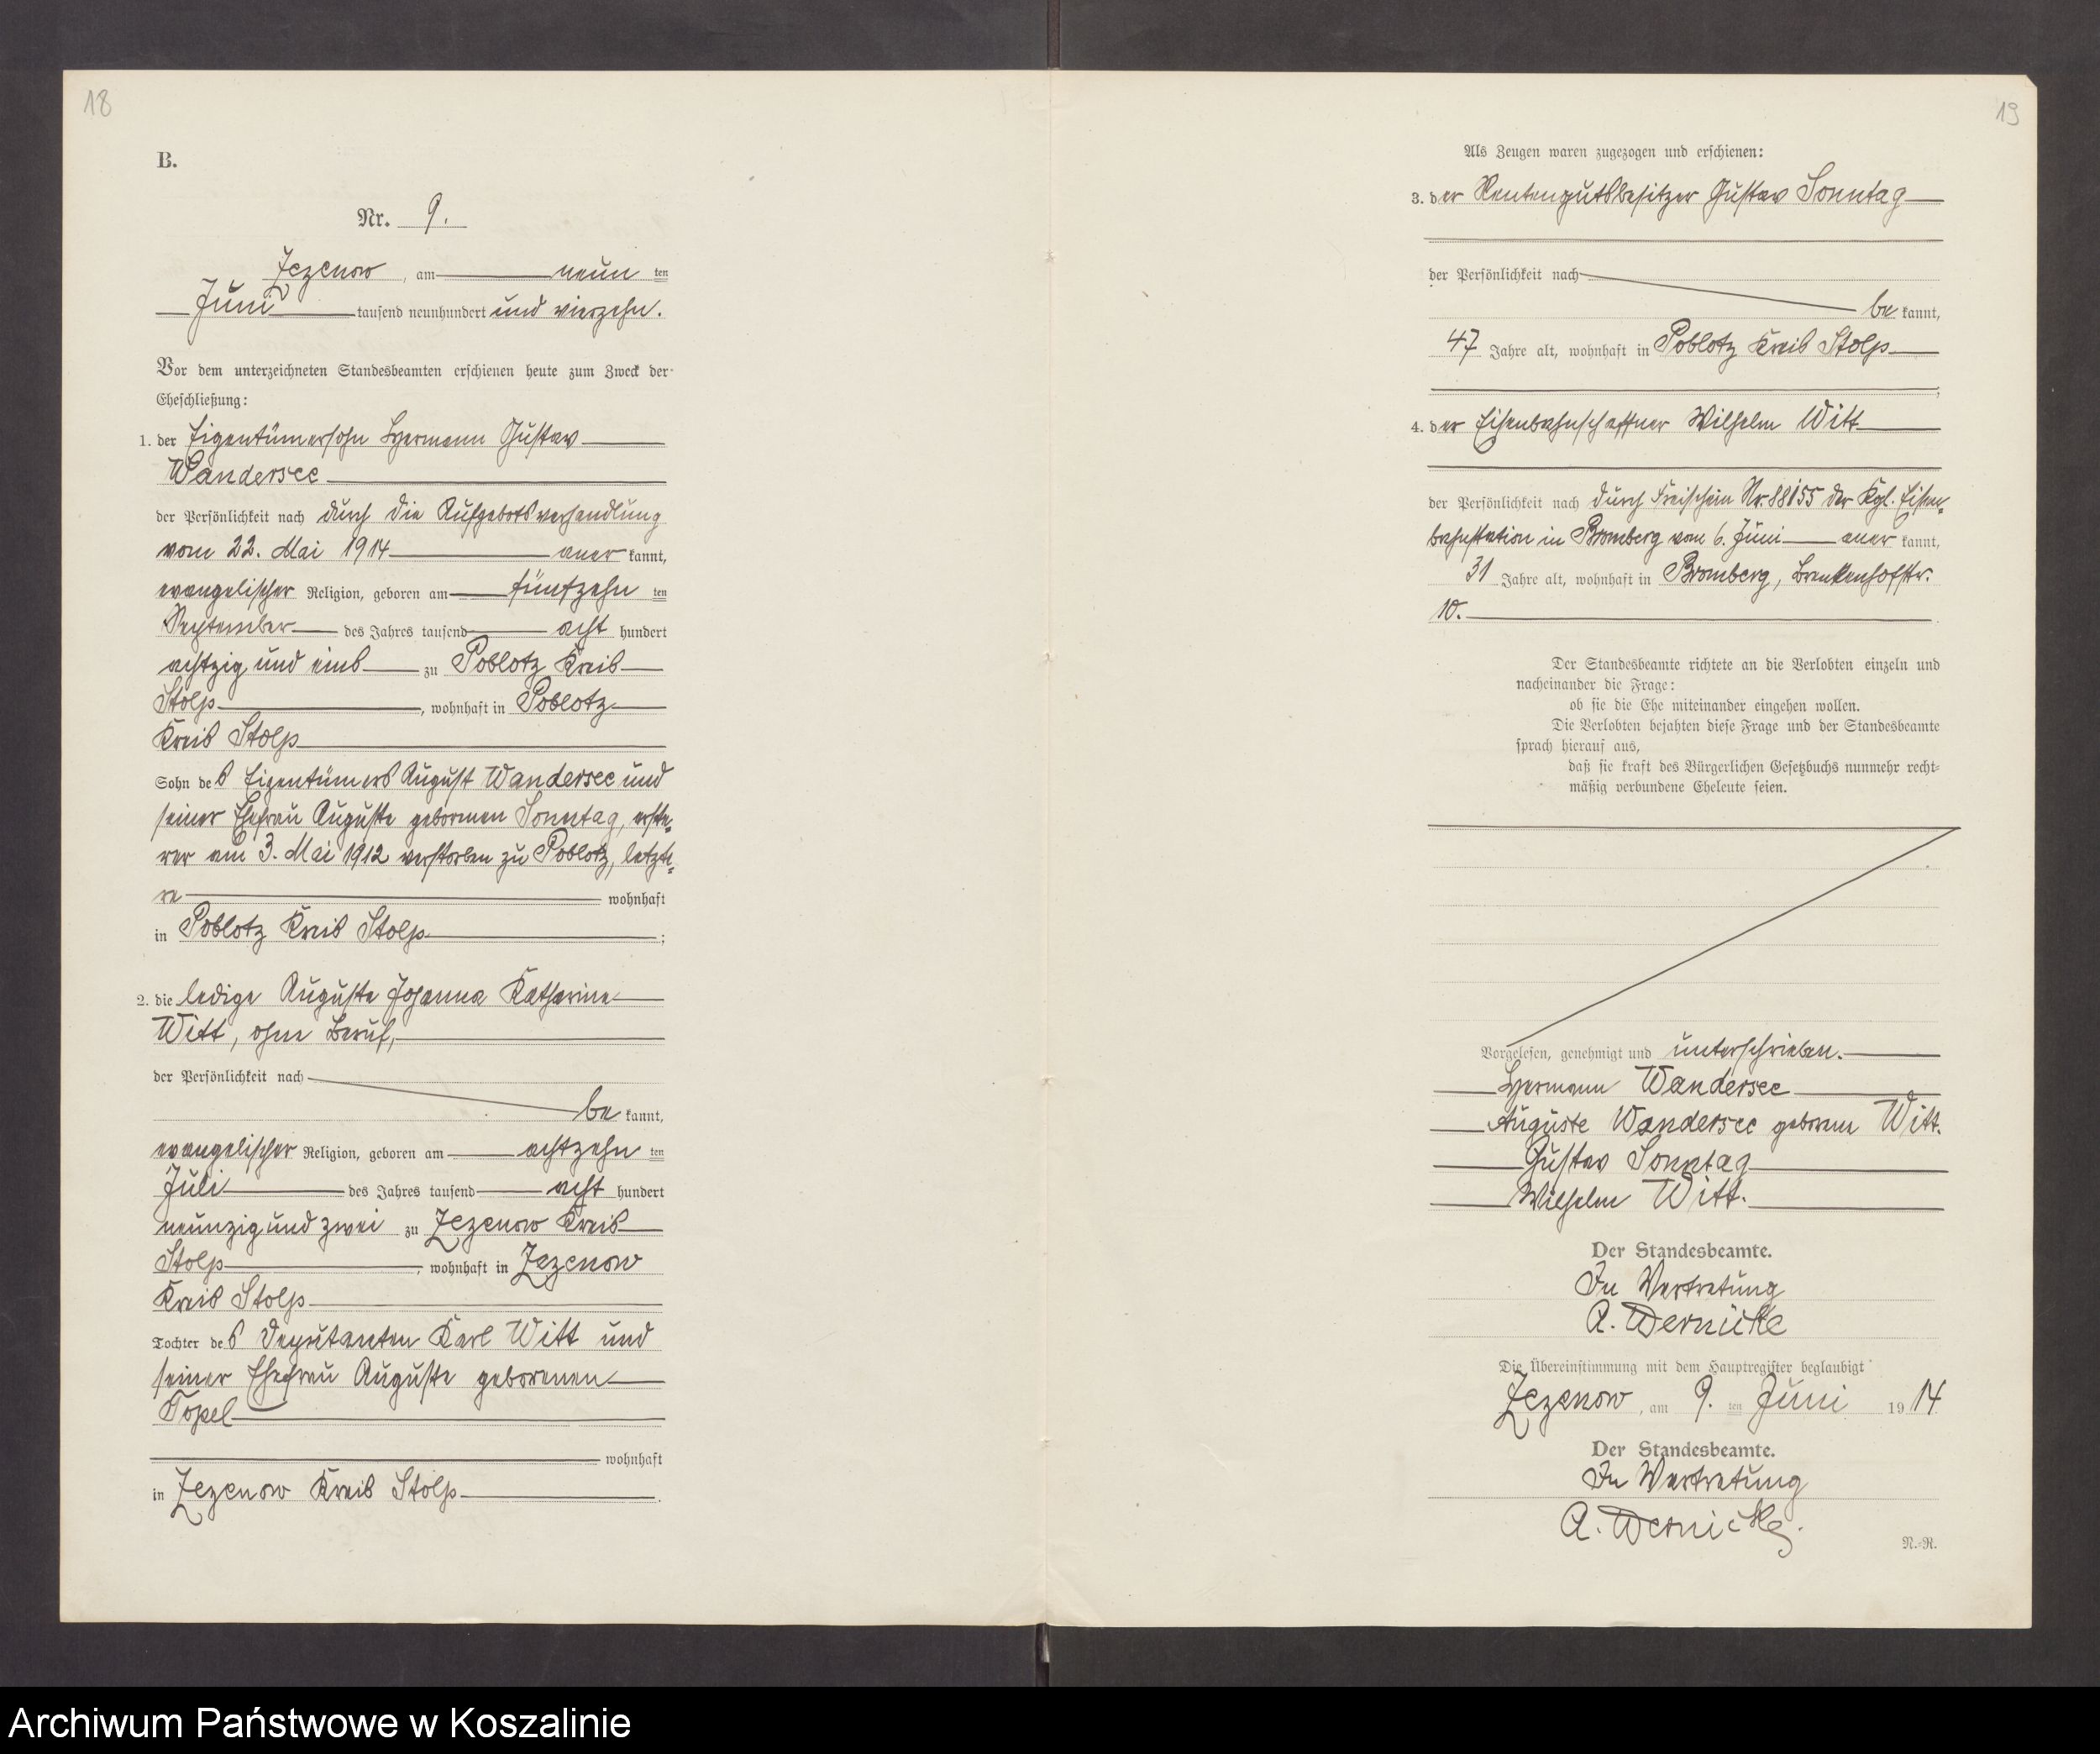 18
B.
Nr. 9.
Zezenow, am neun ten
Juni tausend neunhundert und vierzehn.
Vor dem unterzeichneten Standesbeamten erschienen heute zum Zweck der
Eheschließung:
1. der Eigentümersohn Hermann Gustav
Wandersee
der Persönlichkeit nach durch die Aufgebotsverhandlung
vom 22. Mai 1914 aner kannt,
evangelischer Religion, geboren am fünfzehn ten
September des Jahres tausend acht hundert
achtzig und eins zu Poblotz Kreis
Stolp, wohnhaft in Poblotz
Kreis Stolp
Sohn des Eigentümers August Wandersee und
seiner Ehefrau Auguste geborenen Sonntag, erste-
rer am 3. Mai 1912 verstorben zu Poblotz, letzte-
re wohnhaft
in Poblotz Kreis Stolp;
2. die ledige Auguste Johanna Katharine
Witt, ohne Beruf,
der Persönlichkeit nach
be kannt,
evangelischer Religion, geboren am achtzehn ten
Juli des Jahres tausend acht hundert
neunzig und zwei zu Zezenow Kreis
Stolp, wohnhaft in Zezenow
Kreis Stolp
Tochter des Deputanten Karl Witt und
seiner Ehefrau Auguste geborenen
Topel
wohnhaft
in Zezenow Kreis Stolp.
19
Als Zeugen waren zugezogen und erschienen:
3. der Rentengutsbesitzer Gustav Sonntag
der Persönlichkeit nach
be kannt,
47 Jahre alt, wohnhaft in Poblotz Kreis Stolp
;
4. der Eisenbahnschaffner Wilhelm Witt
der Persönlichkeit nach durch Freischein Nr. 88155 der Kgl. Eisen-
bahnstation in Bromberg vom 6. Juni aner kannt,
31 Jahre alt, wohnhaft in Bromberg, Brenkenhofstr.
10.
Der Standesbeamte richtete an die Verlobten einzeln und
nacheinander die Frage:
ob sie die Ehe miteinander eingehen wollen.
Die Verlobten bejahten diese Frage und der Standesbeamte
sprach hierauf aus,
daß sie kraft des Bürgerlichen Gesetzbuchs nunmehr recht-
mäßig verbundene Eheleute seien.
Vorgelesen, genehmigt und unterschrieben.
Hermann Wandersee
Auguste Wandersee geborene Witt.
Gustav Sonntag
Wilhelm Witt.
Der Standesbeamte.
In Vertretung
A. Wernicke
Die Übereinstimmung mit dem Hauptregister beglaubigt
Zezenow, am 9. ten Juni 1914
Der Standesbeamte.
In Vertretung
A. Wernicke.
N.-R.
Archiwum Państwowe w Koszalinie